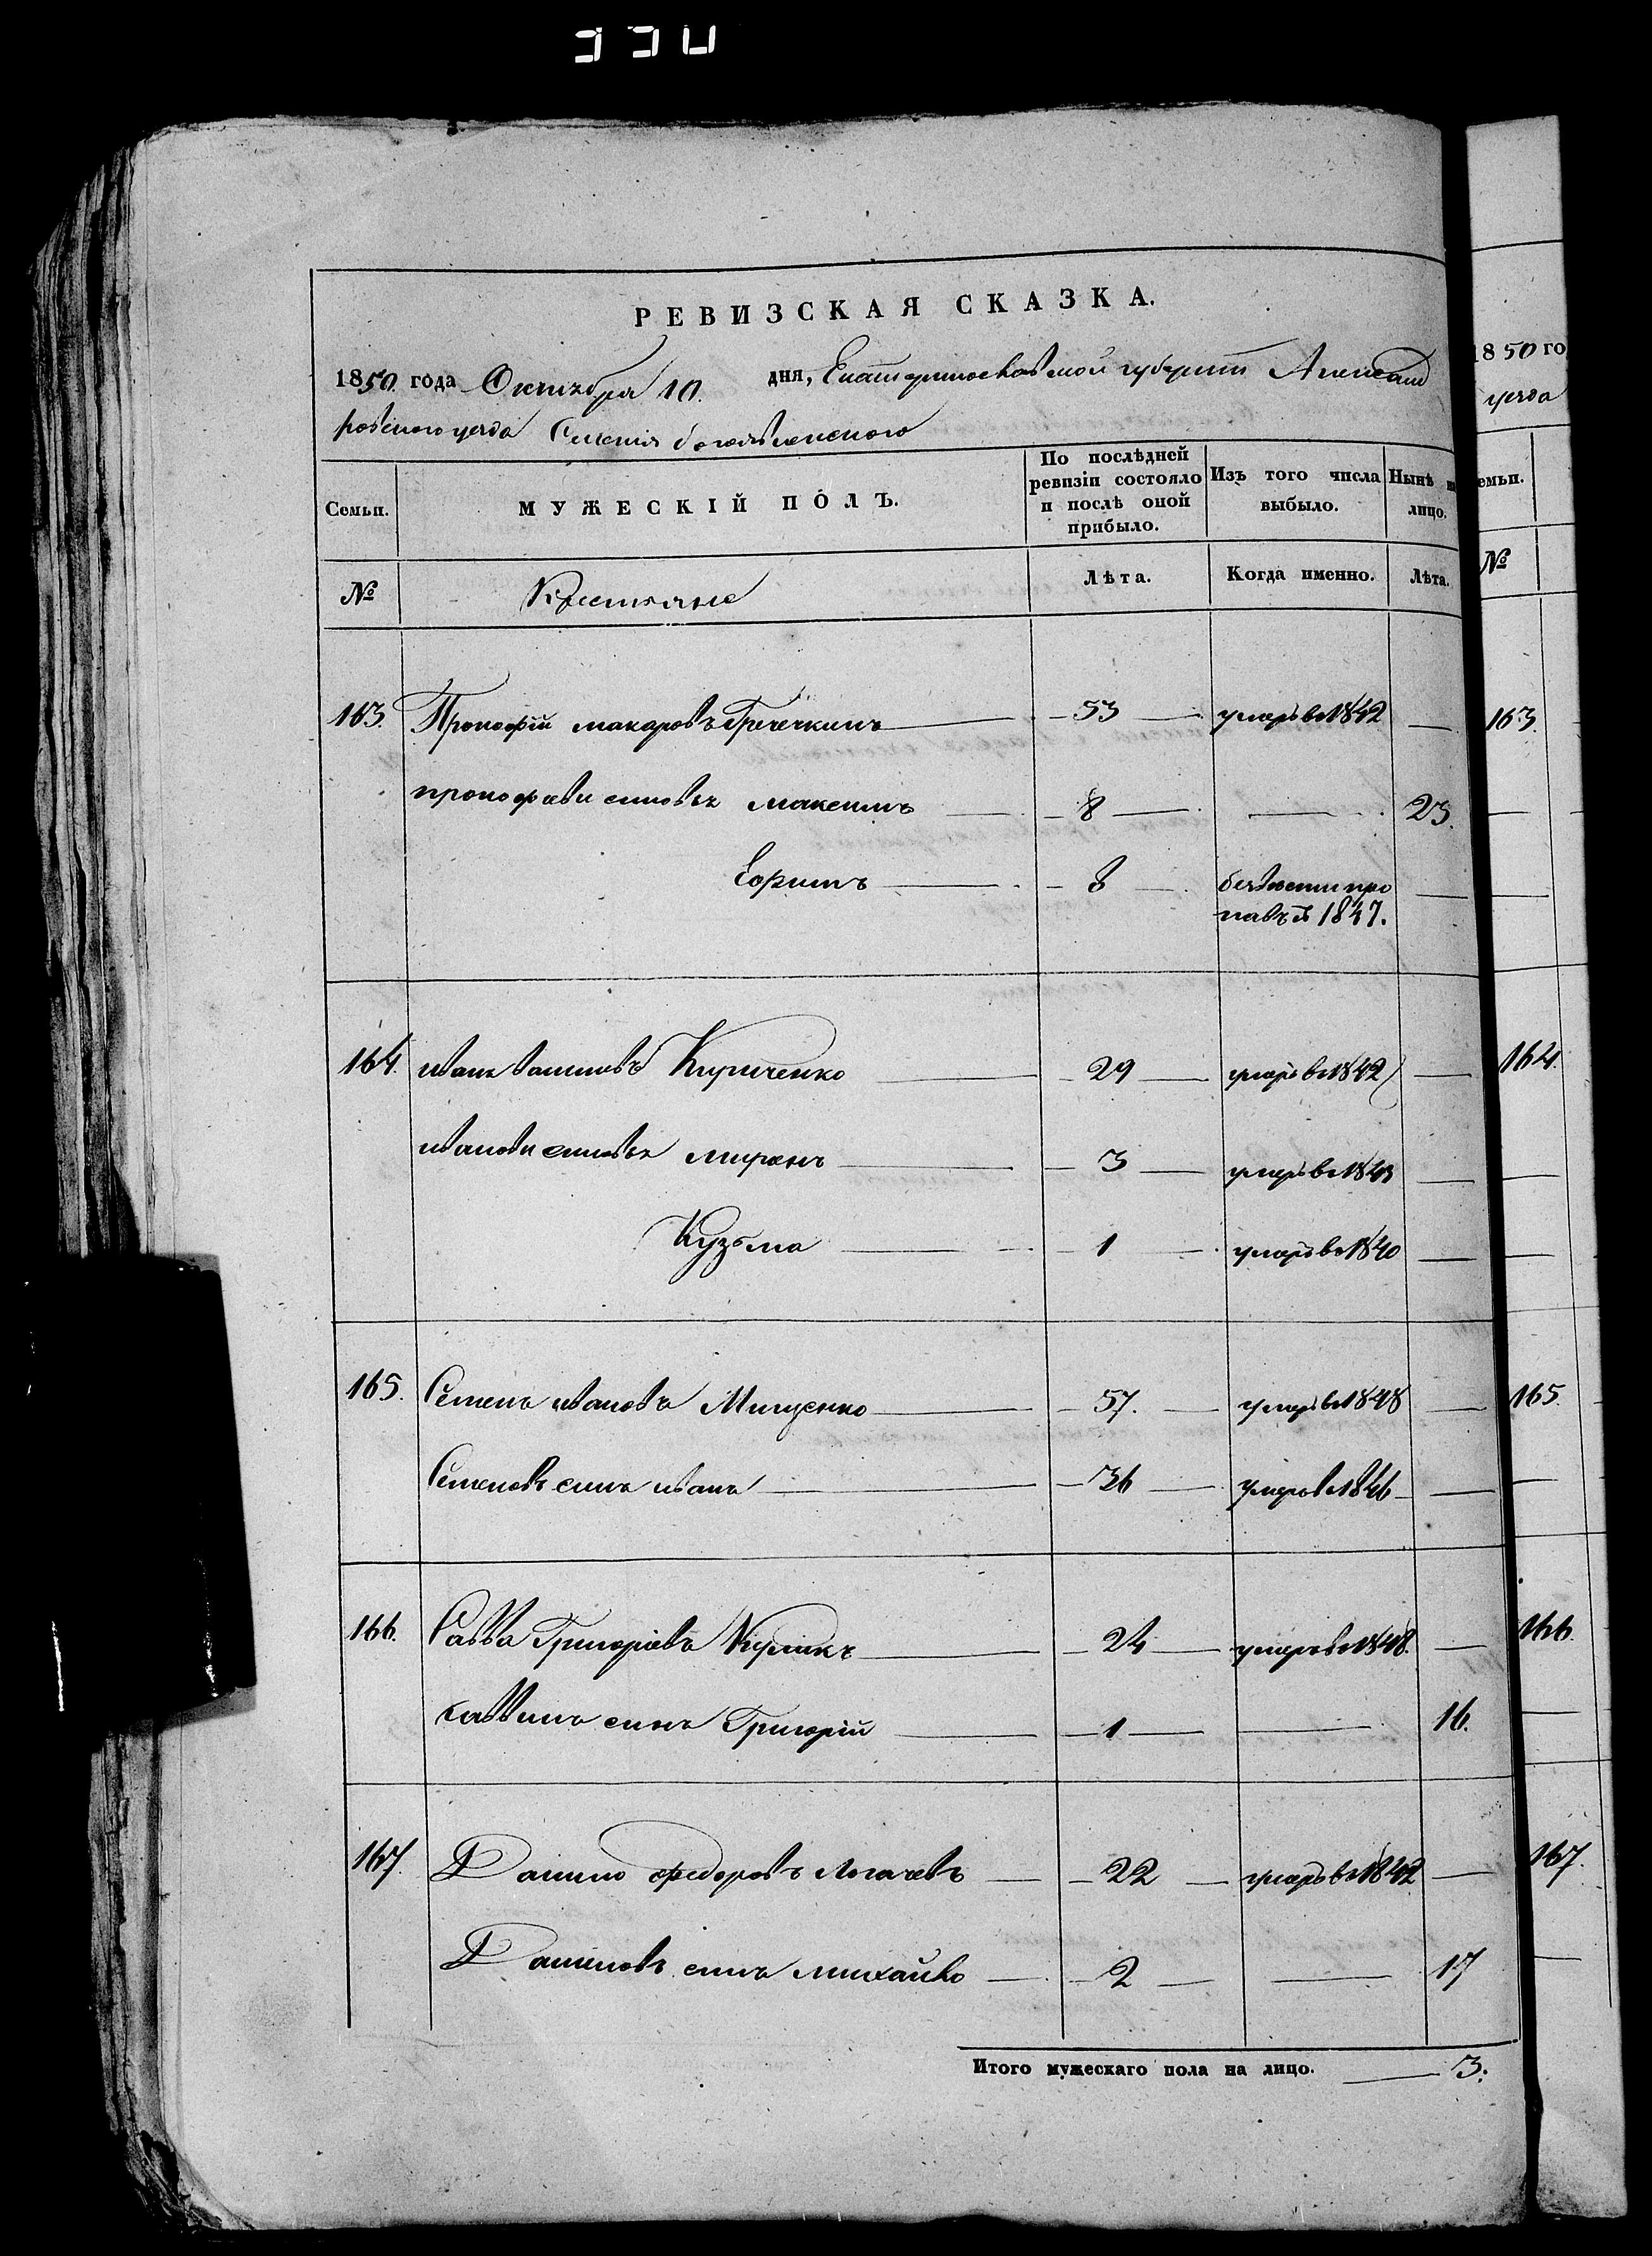 РЕВИЗСКАЯ СКАЗКА.
1850 года Октября 10. дня, Екатеринославской губернии Александ
ровского уезда Селения богоявленского
Семьи. МУЖЕСКІЙ ПОЛЪ. По послѣдней ревизіи состояло и послѣ оной прибыло. Изъ того числа выбыло. Нынѣ на лицо.
№ Крестьяне Лѣта. Когда именно. Лѣта.
163. Прокофій макаровъ Гречечкинъ 53 умеръ въ 1842
прокофіеви синовья максимъ 8 23.
Ефимъ 3 безвести про
павъ въ 1847.
164. иванъ Кириченко 29 умеръ въ 1842
иванови синовья миронъ 3 умеръ въ 1843
Кузьма 1 умеръ въ 1840
165. Семенъ ивановъ Мищенко 57. умеръ въ 1848
Семеновъ синъ иванъ 36 умеръ въ 1846
166. Савва Григоріевъ 24 умеръ въ 1848.
саввинъ синъ Григорій 1 16.
167. Данило федоровъ логачевъ 22 умеръ въ 1842
Даниловъ синъ михайло 2 17
Итого мужескаго пола на лицо. 3.
1850 го
уезда
емьи.
№
163.
164.
165.
166.
167.